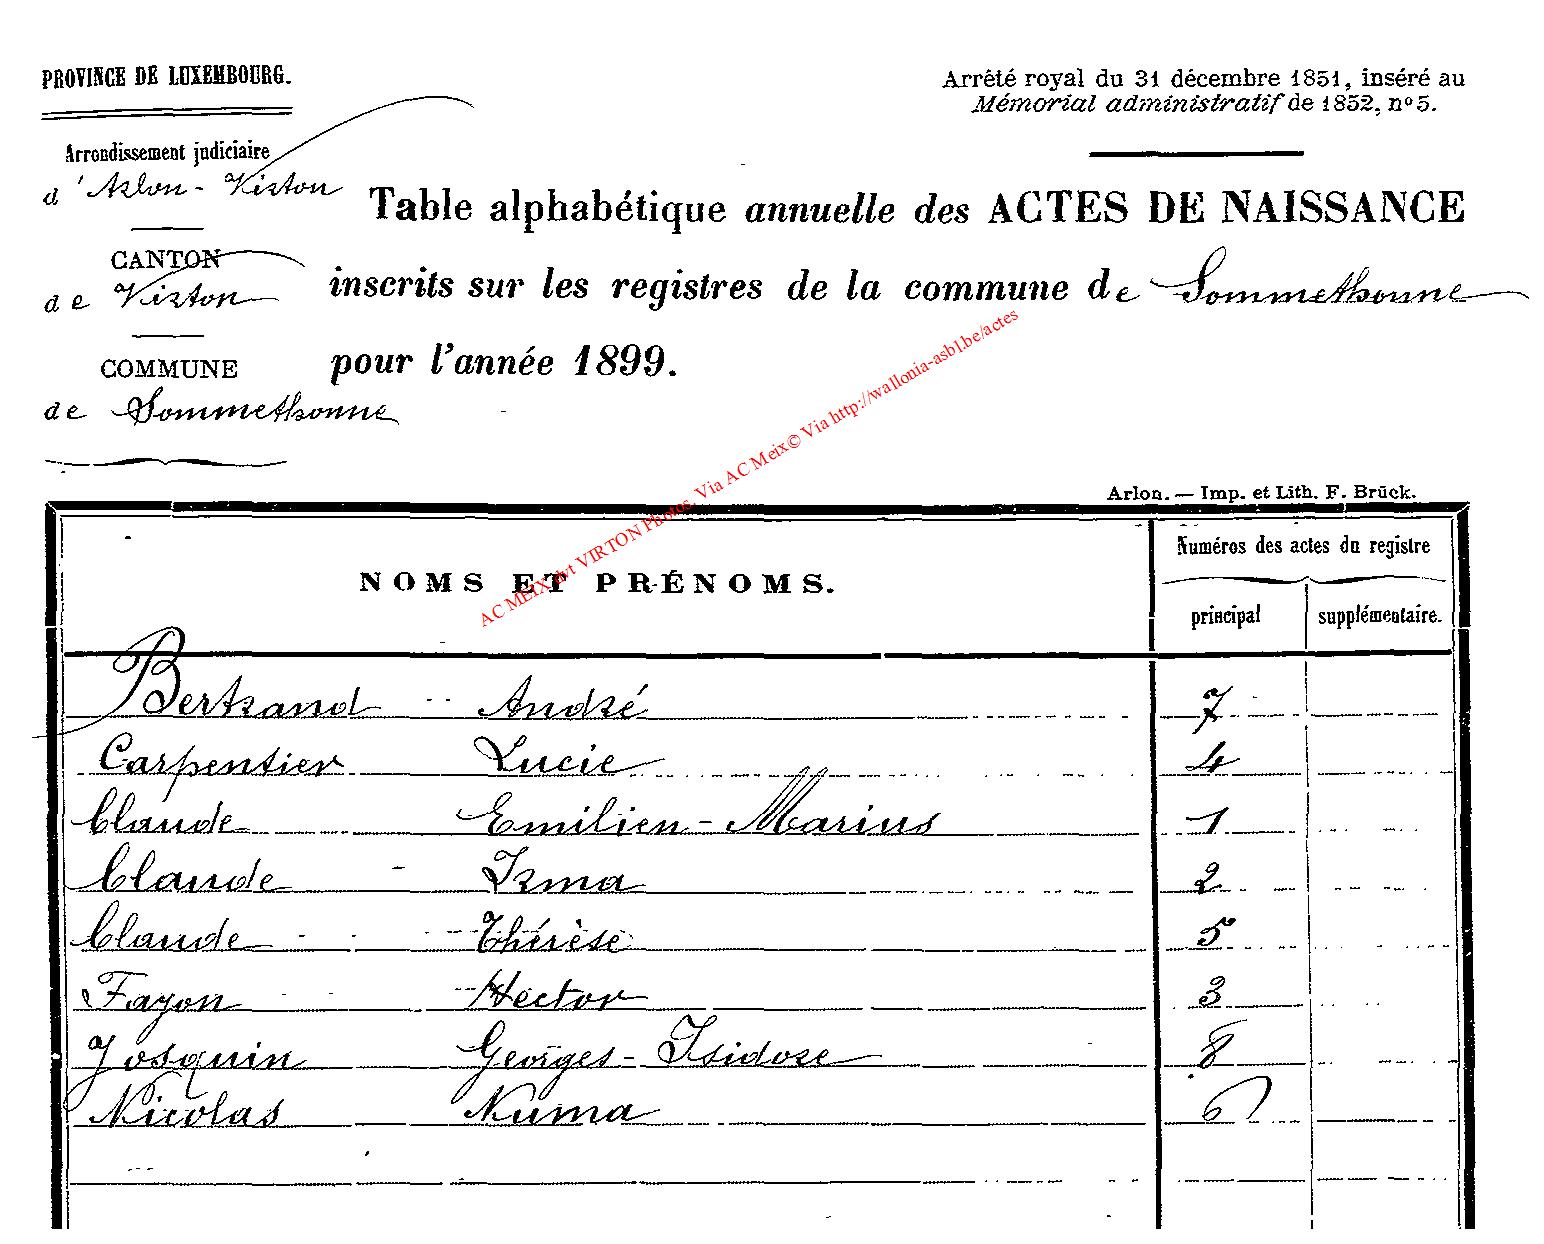 PROVINCE DE LUXEMBOURG.
Arrêté royal du 31 décembre 1851, inséré au
Mémorial administratif de 1852, nº 5.
Arrondissement judiciaire
d'Arlon - Virton
Table alphabétique annuelle des ACTES DE NAISSANCE
CANTON
de Virton
inscrits sur les registres de la commune de Sommethonne
pour l'année 1899.
COMMUNE
de Sommethonne
AC MEIX dvt VIRTON Photos. Via AC Meix© Via http://wallonia-asbl.be/actes
Arlon. — Imp. et Lith. F. Brück.
NOMS ET PRÉNOMS.
Numéros des actes du registre
principal supplémentaire.
Bertrand André 7
Carpentier Lucie 4
Claude Emilien-Marius 1
Claude Irma 2
Claude Thérèse 5
Fayon Hector 3
Josquin Georges-Isidore 8
Nicolas Numa 6